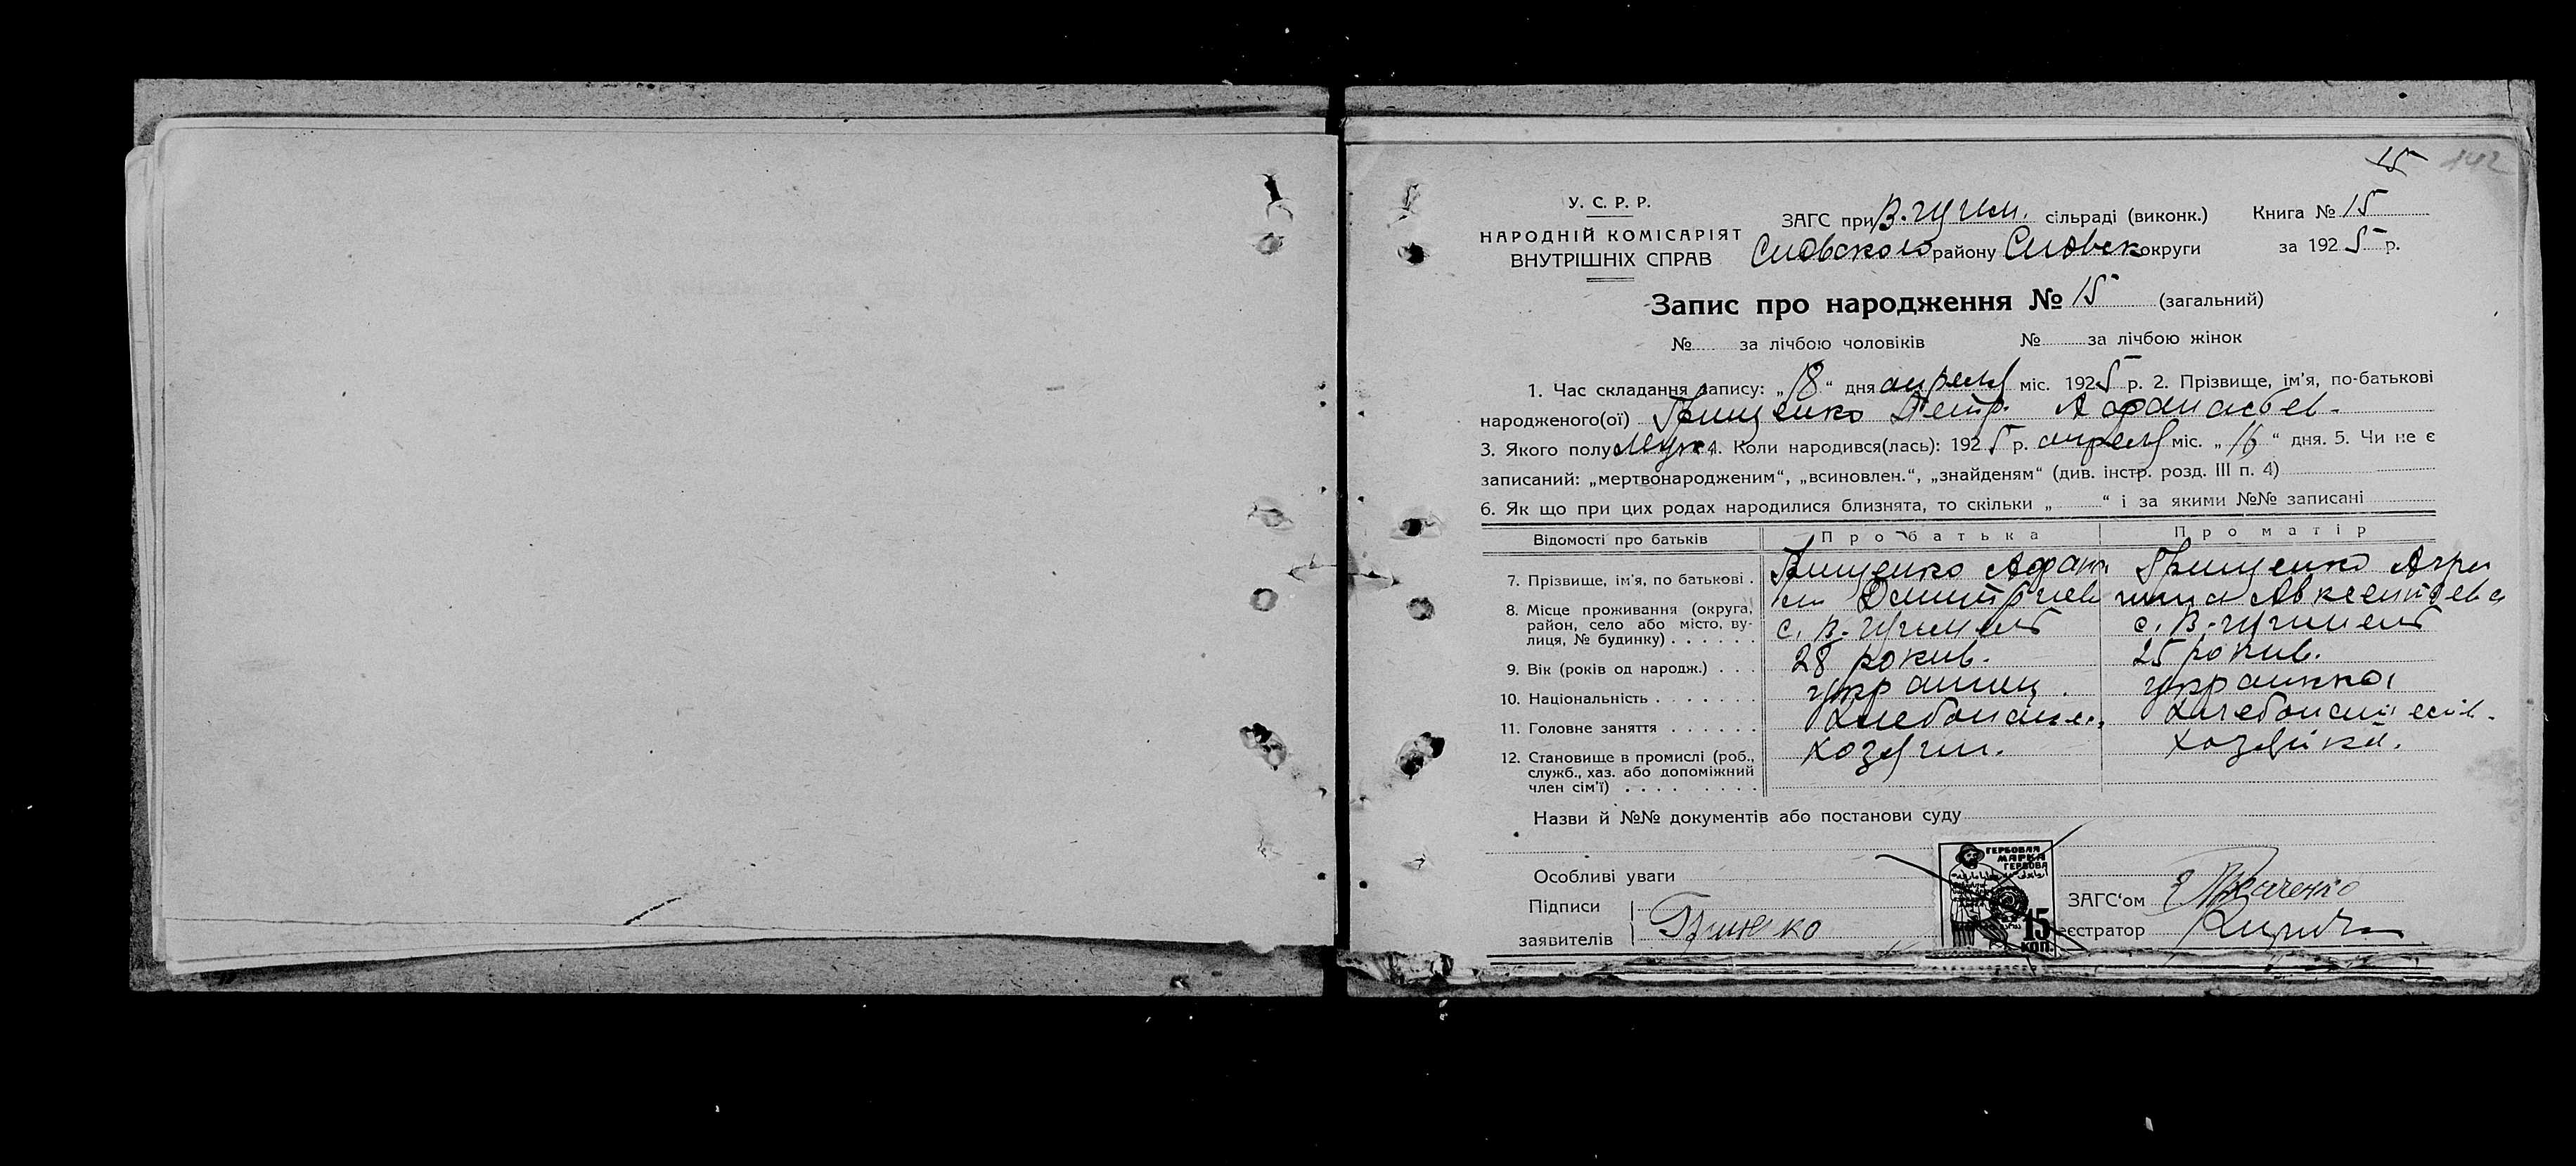 15 142
У. С. Р. Р.
НАРОДНІЙ КОМІСАРІЯТ
ВНУТРІШНІХ СПРАВ
ЗАГС при В. сільраді (виконк.) Книга № 15
району округи за 1925 р.
Запис про народження № 15 (загальний)
№ за лічбою чоловіків № за лічбою жінок
1. Час складання запису: „18“ дня апреля міс. 1925 р. 2. Прізвище, ім'я, по-батькові
народженого(ої) Грищенко Петр. Афанасьев.
3. Якого полу муж. 4. Коли народився(лась): 1925 р. апреля міс. „16“ дня. 5. Чи не є
записаний: „мертвонародженим“, „всиновлен.“, „знайденям“ (див. інстр. розд. III п. 4)
6. Як що при цих родах народилися близнята, то скільки „ “ і за якими №№ записані
Відомості про батьків Про батька Про матір
7. Прізвище, ім'я, по батькові . Грищенко Афана Грищенко Агри
Дмитриев Авксентьева
8. Місце проживання (округа,
район, село або місто, ву-
лиця, № будинку) . . . . . . с. В. с. В.
9. Вік (років од народж.) . . . 28 рокив. 25 рокив.
10. Національність . . . . . . . украинец. украинка
11. Головне заняття . . . . . .
12. Становище в промислі (роб.,
служб., хаз. або допоміжний
член сім'ї) . . . . . . . . хозяин. хозяйка.
Назви й №№ документів або постанови суду
Особливі уваги
Підписи
заявителів
ГЕРБОВАЯ
МАРКА
ГЕРБОВА
15
КОП.
ЗАГС‘ом Ткаченко
еєстратор